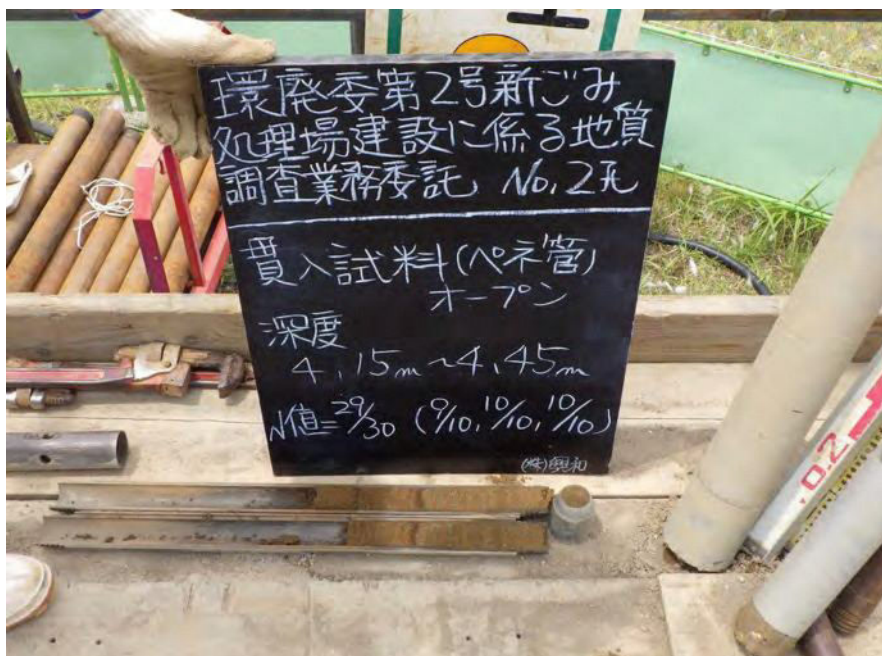 環廃委第2号新ごみ
処理場建設に係る地質
調査業務委託 No.2孔
貫入試料(ペネ管)
オープン
深度
4.15m~4.45m
N値=29/30 (9/10, 10/10, 10/10)
(株)興和
0.2